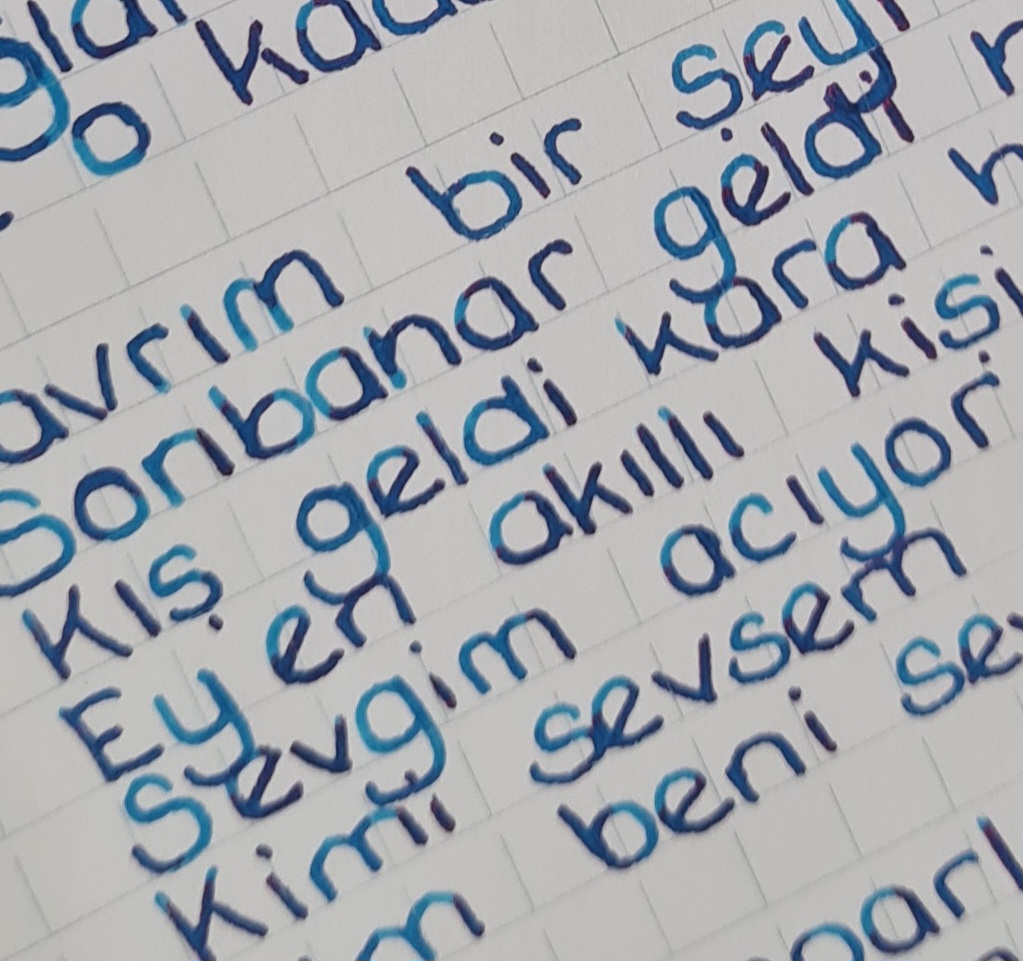 o
avrım bir şey
Sonbahar geldi
Kış geldi kara
Ey en akıllı kişi
Sevgim acıyor
Kimi sevsem
beni se